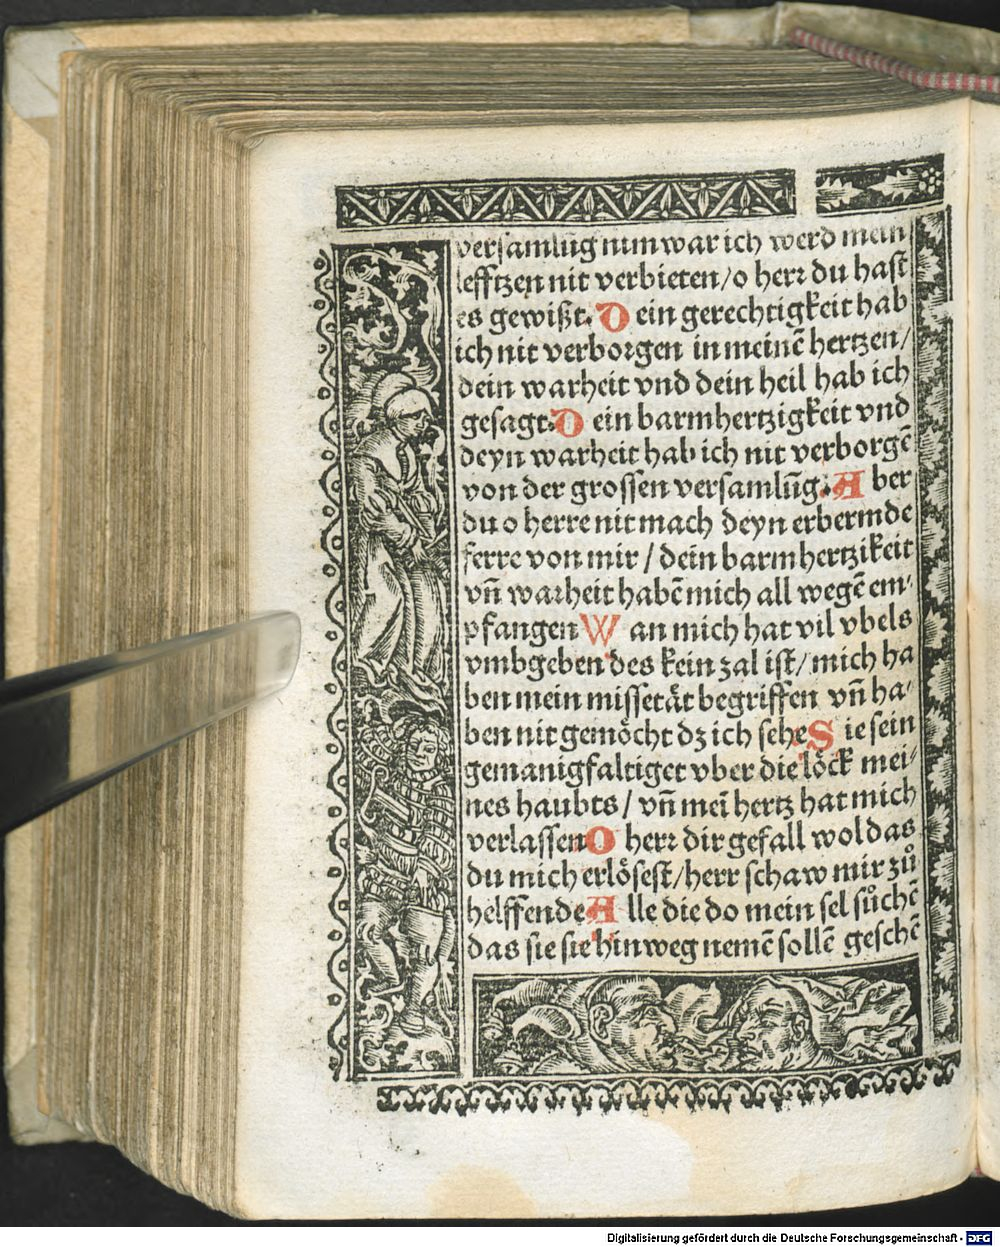 versamlūg nim war ich werd mein
lefftzen nit verbieten/o herꝛ du hast
es gewißt. Dein gerechtigkeit hab
ich nit verboꝛgen in meinē hertzen/
dein warheit vnd dein heil hab ich
gesagt. Dein barmhertzigkeit vnd
deyn warheit hab ich nit verborgē
von der grossen versamlūg. Aber
du o herre nit mach deyn erbermde
ferre von mir / dein barmhertzikeit
vn̄ waꝛheit habē mich all wegē em⸗
pfangen Wan mich hat vil vbels
vmbgeben des kein zal ist/ mich ha
ben mein missetåt begriffen vn̄ ha⸗
ben nit gemöcht dz ich sehe Sie sein
gemanigfaltiget vber die löck mei⸗
nes haubts / vn̄ meī hertz hat mich
verlassen O herꝛ dir gefall wol das
du mich erlösest/herr schaw mir zů
helffende Alle die do mein sel sůchē
das sie sie hin weg nemē sollē geschē
Digitalisierung gefördert durch die Deutsche Forschungsgemeinschaft - DFG